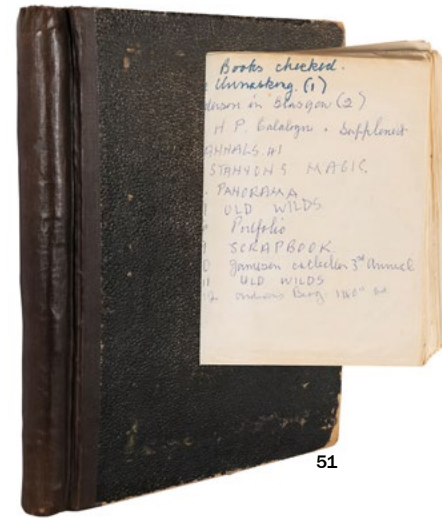 Books checked.
Unmasking. (1)
in Glasgow (2)
H P. Catalogue. Supplement
ANNALS. #1
STANYONS MAGIC.
PANORAMA
OLD WILDS
Portfolio
SCRAPBOOK
Jameson collection 3rd Annual
OLD WILDS
51